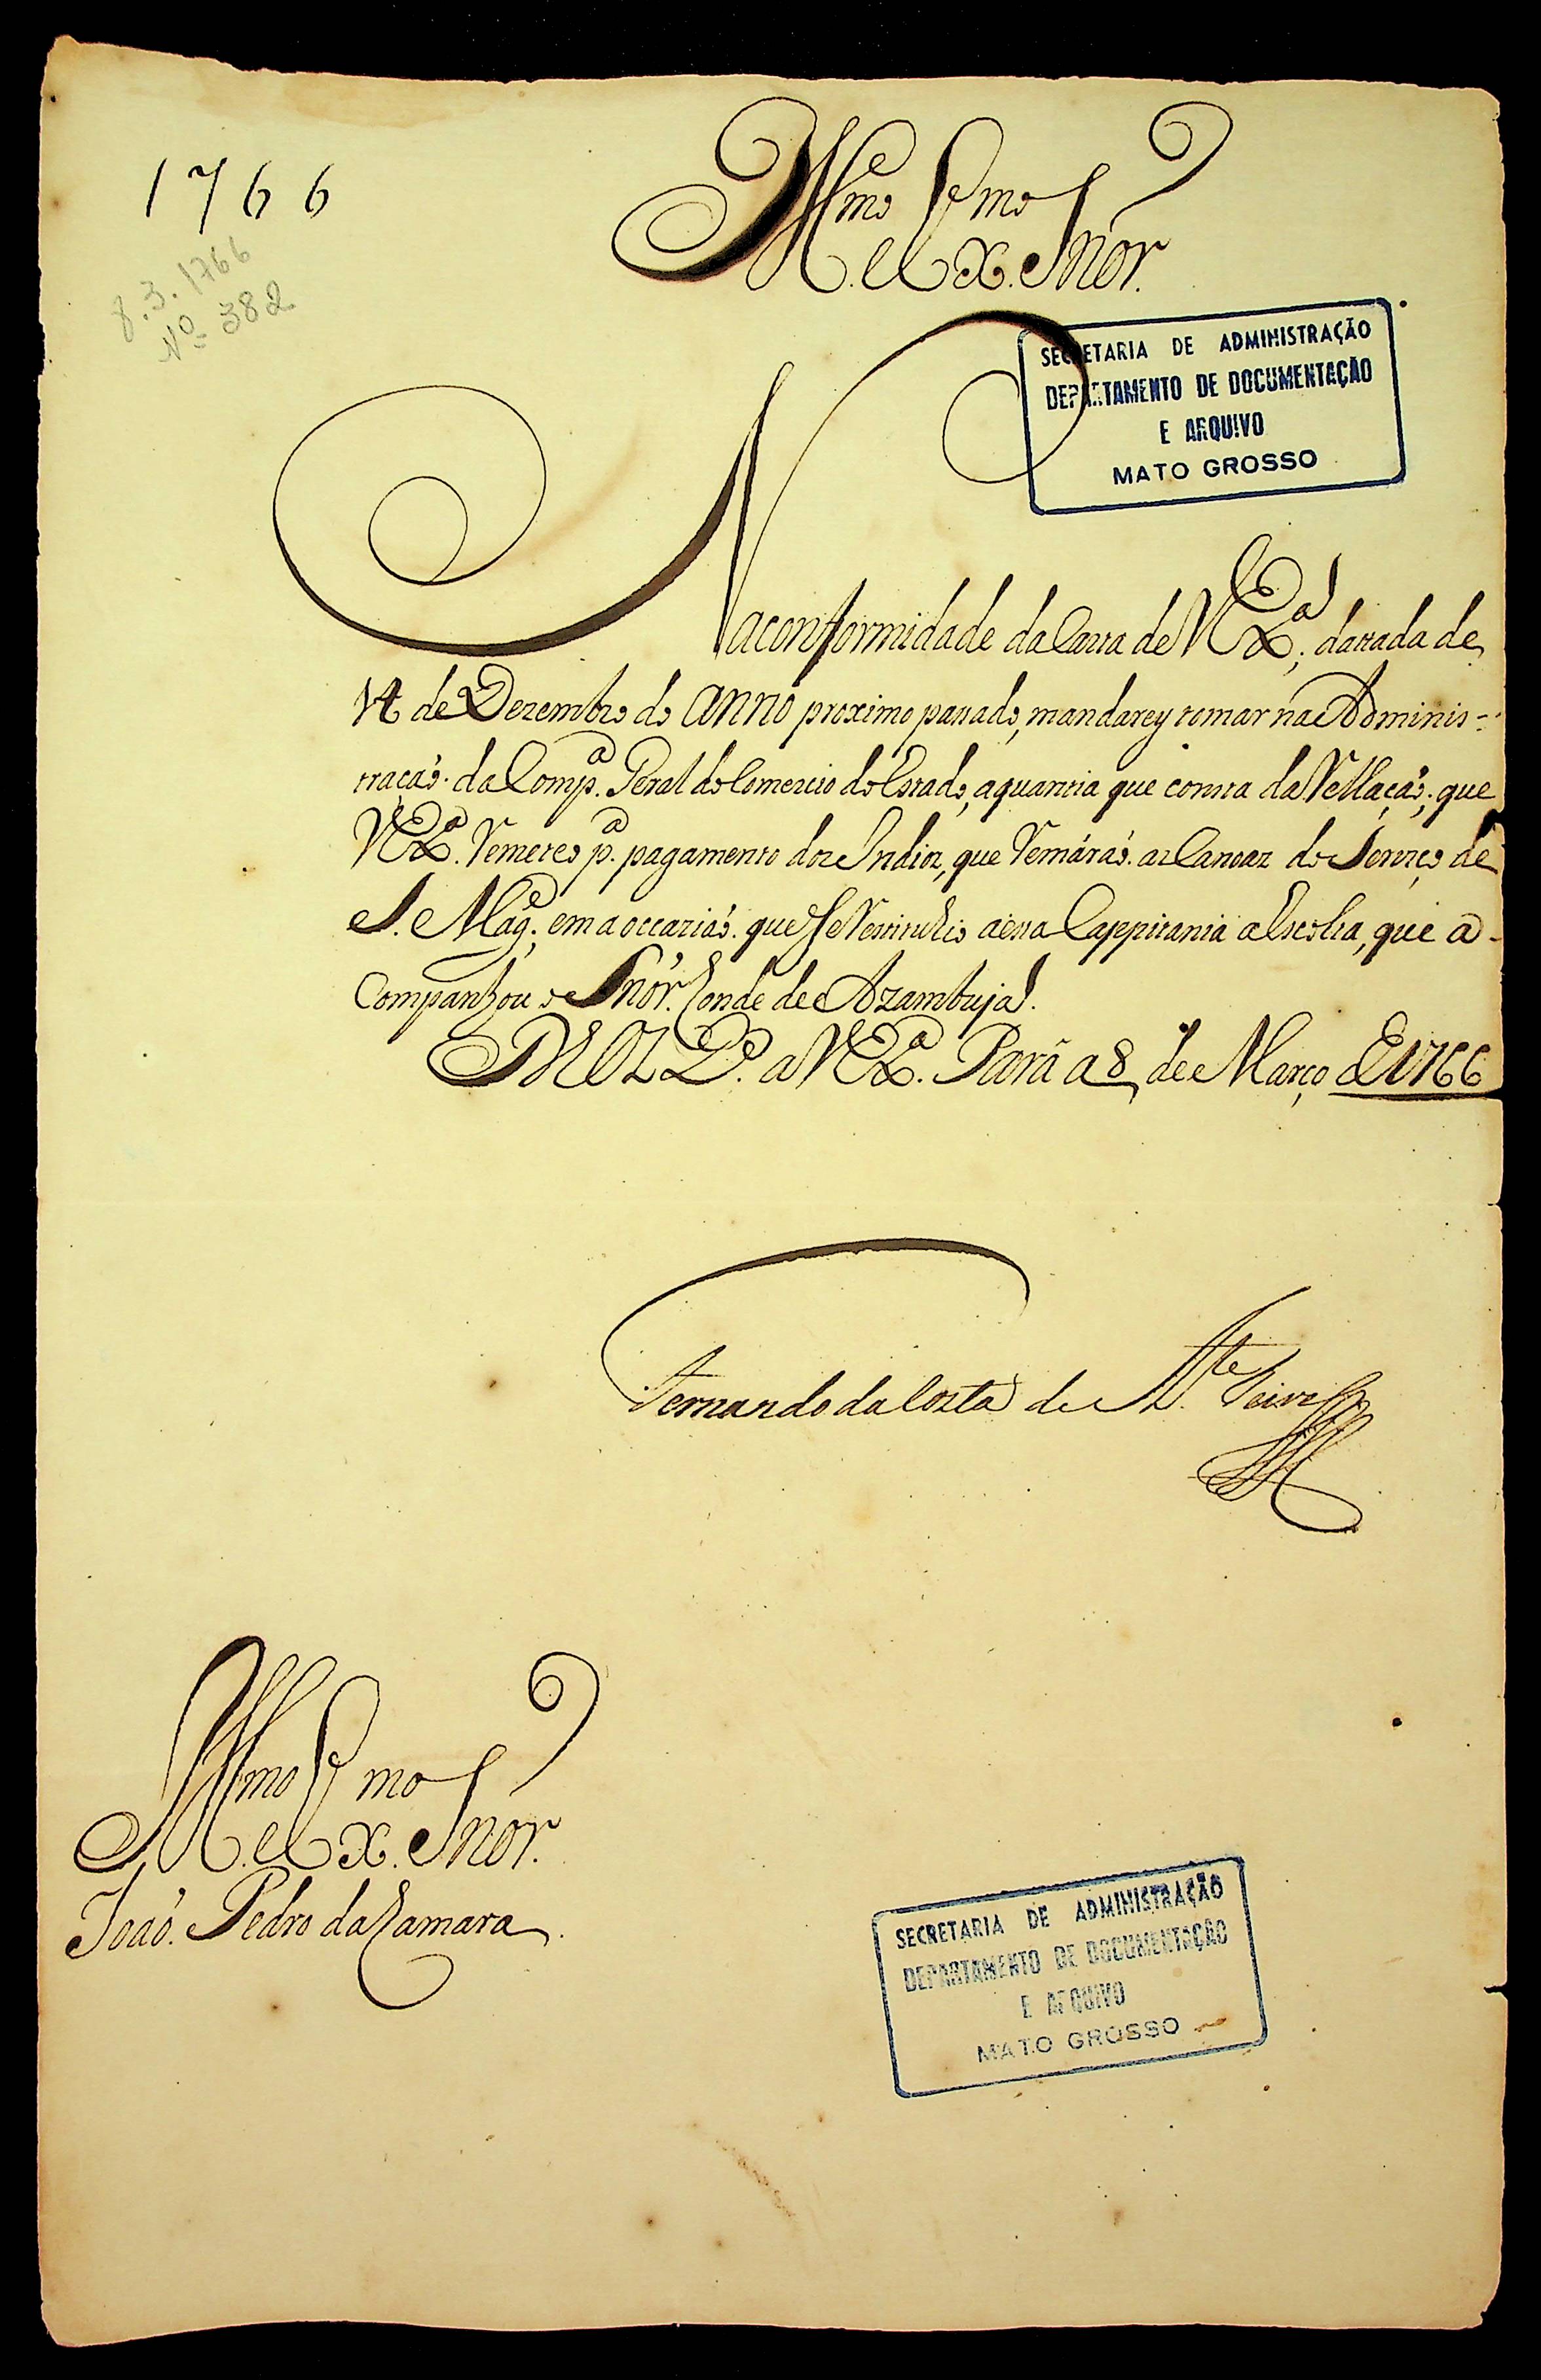 1766
8.3.1766
Nº 382
Ill.mo e Ex.mo Snor.
SECRETARIA DE ADMINISTRAÇÃO
DEPARTAMENTO DE DOCUMENTAÇÃO
E ARQUIVO
MATO GROSSO
Na conformidade da Carta de V Ex.ª, datada de
14 de Dezembro do anno proximo passado, mandarey tomar na Adminis-
traçaõ da Comp.ª Geral do Comercio do Estado, a quantia que consta da Rellaçaõ, que
V Ex.ª Remeteo p.ª pagamento dos Indios, que Remáraõ as Canoas do Serviço de
S. Mag.e, em a occasiaõ que se Restituhio a essa Cappitania a Escolta, que a-
Companhou o Snõr. Conde de Azambuja.
D.s G.e a V Ex.ª Pará a 8 de Março de 1766
Fernando da Costa de At.e Teive
Ill.mo e Ex.mo Snor.
Joaõ Pedro da Camara
SECRETARIA DE ADMINISTRAÇÃO
DEPARTAMENTO DE DOCUMENTAÇÃO
E ARQUIVO
MATO GROSSO